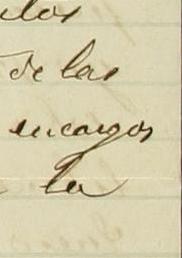 de las
encargos
la